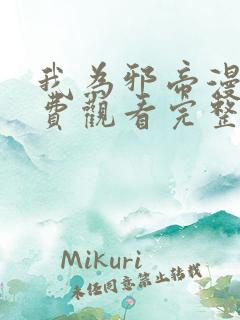 我為邪帝漫
費觀看完整
Mikuri
未经同意禁止转载